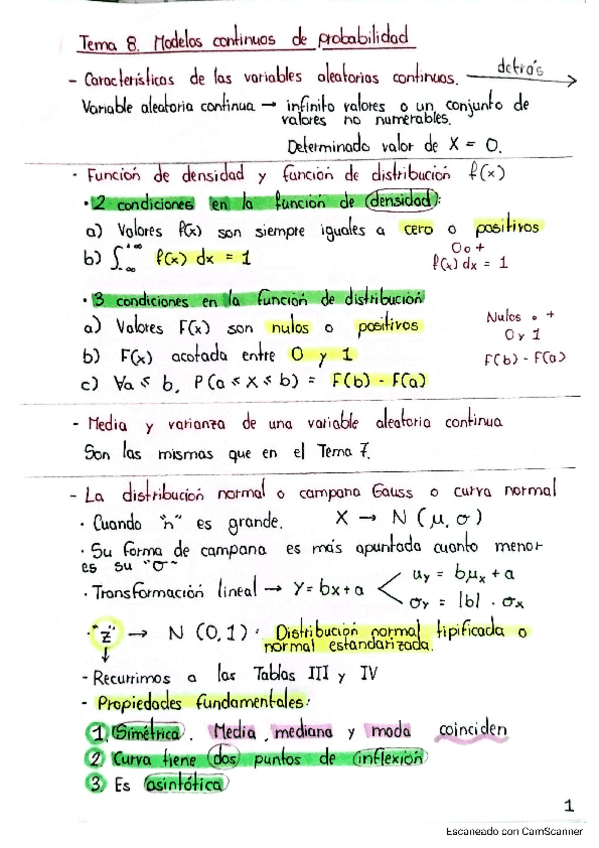 Tema 8. Modelos continuos de probabilidad
- Características de las variables aleatorias continuas. detrás →
Variable aleatoria continua → infinito valores o un conjunto de
valores no numerables.
Determinado valor de X = 0.
· Función de densidad y función de distribución f(x)
· 2 condiciones en la función de densidad:
a) Valores f(x) son siempre iguales a cero o positivos
0 o +
b) ∫ +∞ -∞ f(x) dx = 1
f(x) dx = 1
· 3 condiciones en la función de distribución
Nulos o +
a) Valores F(x) son nulos o positivos
0 y 1
b) F(x) acotada entre 0 y 1
F(b) - F(a)
c) ∀a ≤ b, P(a ≤ X ≤ b) = F(b) - F(a)
- Media y varianza de una variable aleatoria continua
Son las mismas que en el Tema 7.
- La distribución normal o campana Gauss o curva normal
· Cuando "n" es grande. X → N (μ, σ)
· Su forma de campana es más apuntada cuanto menor
es su "σ"
· Transformación lineal → Y = bx + a < uy = bμx + a
σy = |b| · σx
· "z" → N (0,1) · Distribución normal tipificada o
normal estandarizada.
↓
- Recurrimos a las Tablas III y IV
- Propiedades fundamentales:
1. Simétrica. Media, mediana y moda coinciden
2. Curva tiene dos puntos de inflexión
3. Es asintótica
1
Escaneado con CamScanner